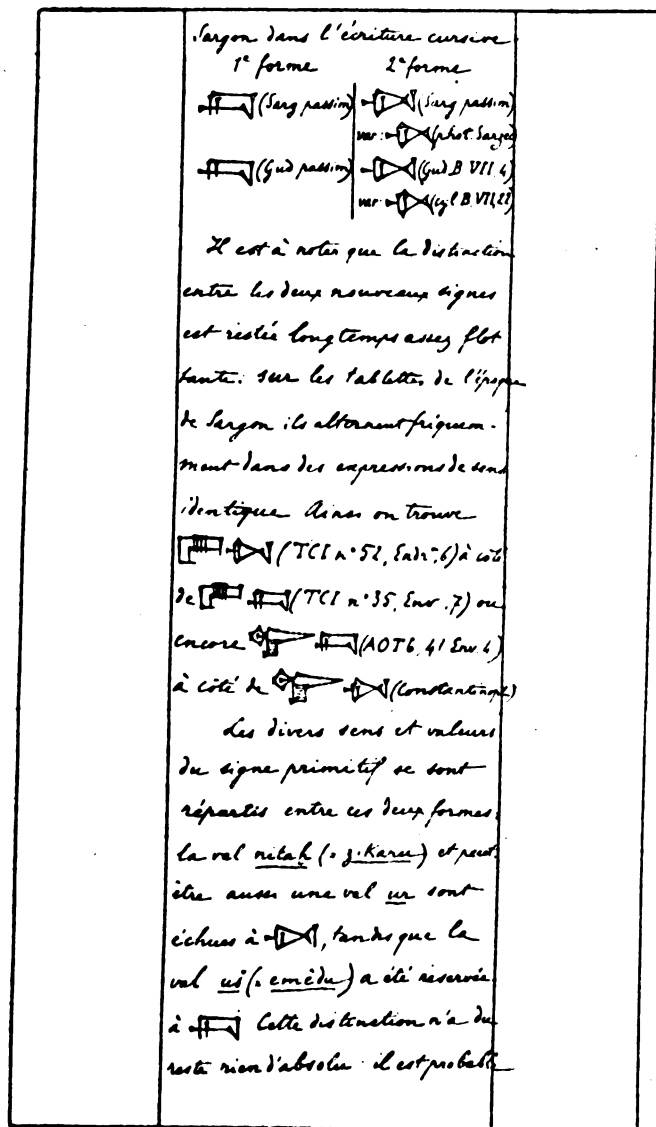 Sargon dans l'écriture cursive
1e forme 2e forme
(Sarg passim) (Sarg passim)
var: (phot. Sarzec)
(Gud passim) (Gud B VII, 4)
var: (cyl B VII, 22)
Il est à noter que la distinction
entre les deux nouveaux signes
est restée longtemps assez flot
tante: sur les tablettes de l'époque
de Sargon ils alternent fréquem-
ment dans des expressions de sens
identique Ainsi on trouve
(TCI n° 52, 6) à côté
de (TCI n° 35, Env. 7) ou
encore (AOTb, 41 Env. 4)
à côté de (Constantinopl)
Les divers sens et valeurs
du signe primitif se sont
répartis entre ces deux formes.
la val nitaḫ (= zikaru) et peut.
être aussi une val ur sont
échues à , tandis que la
val uš (= emêdu) a été réservée
à Cette distinction n'a du
reste rien d'absolu. il est probable